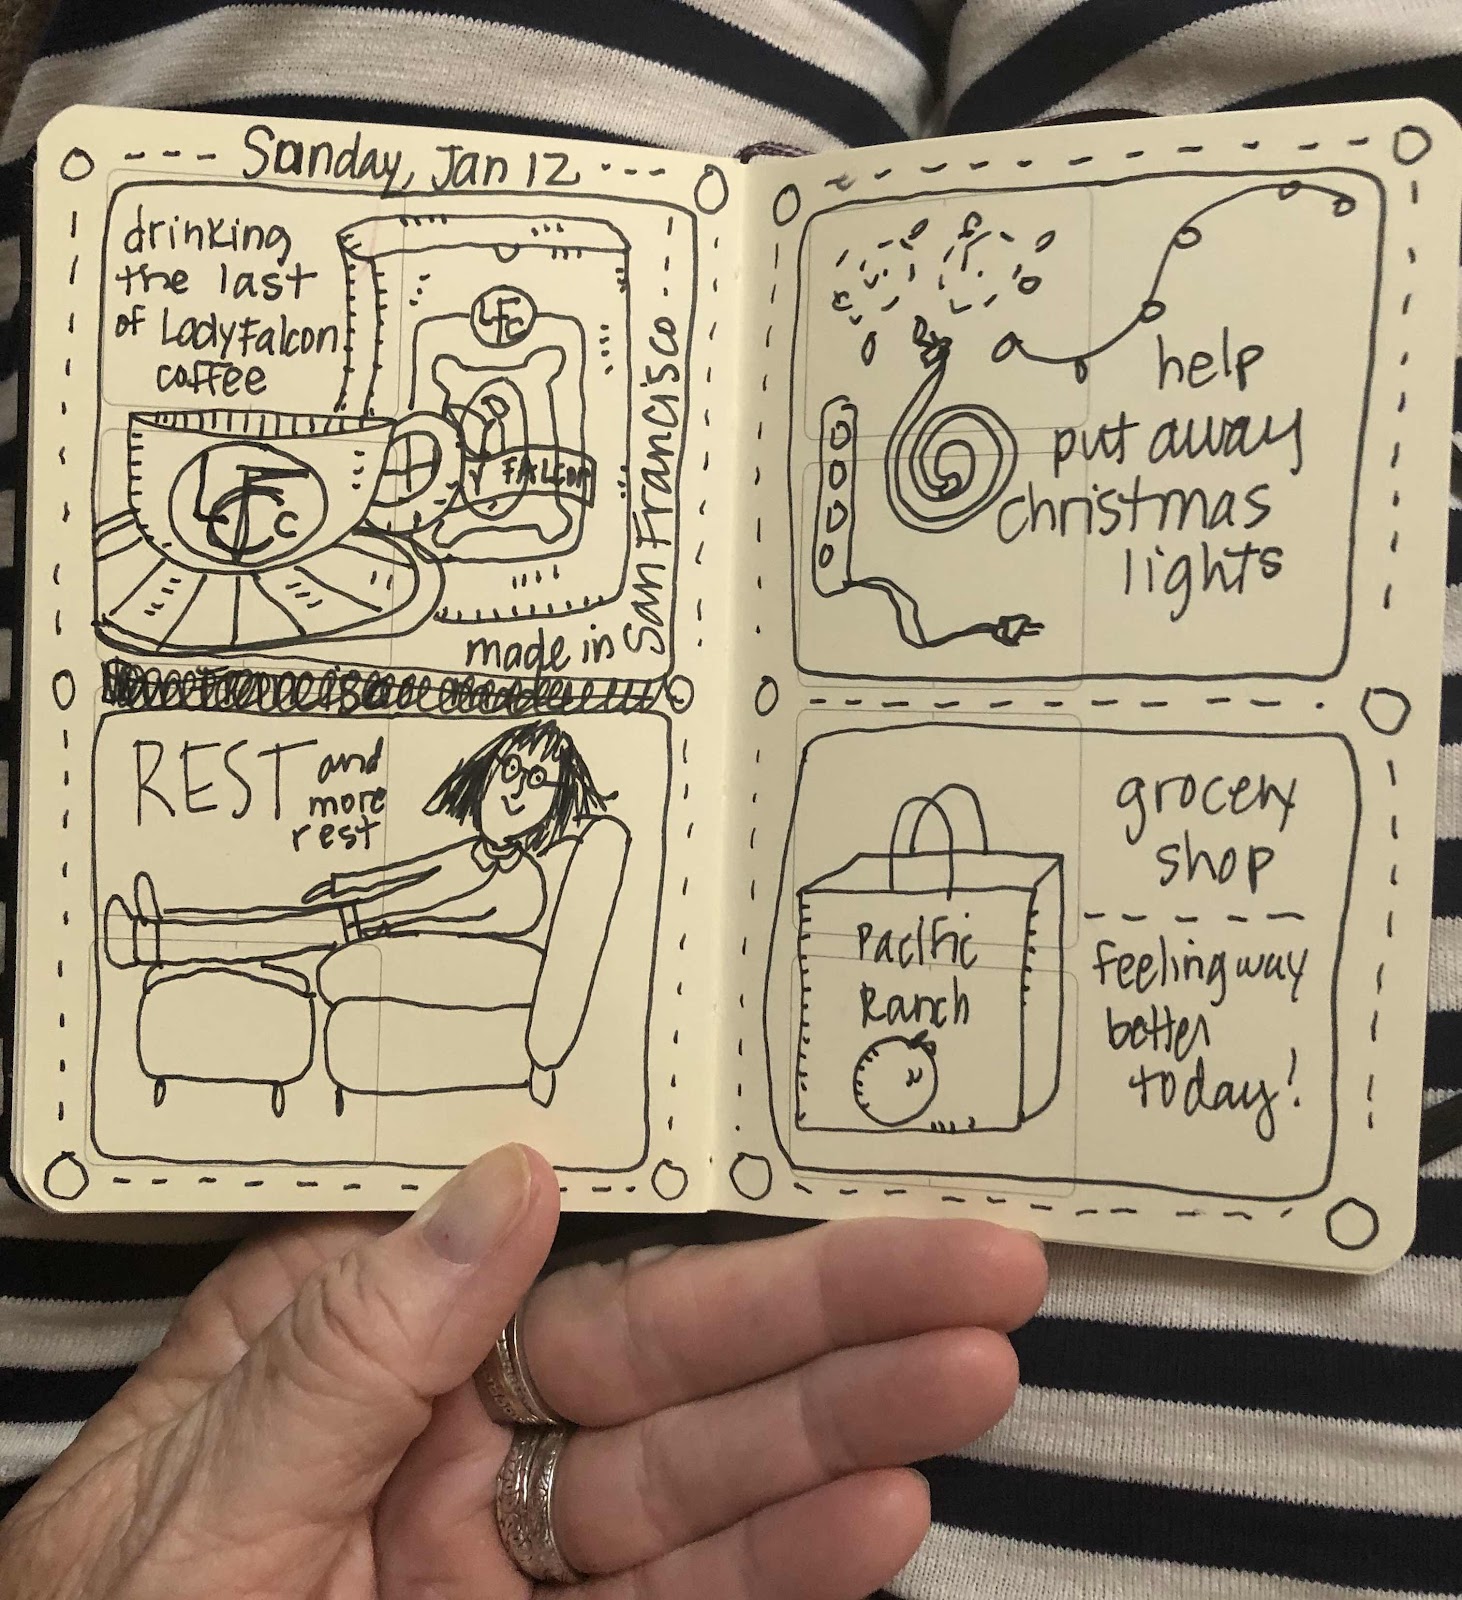 Sunday, Jan 12
drinking
the last
of LadyFalcon
coffee
LFC
Y FALCON
LFCC
made in
San Francisco
REST and
more
rest
help
put away
christmas
lights
grocery
shop
Pacific
Ranch
feeling way
better
today!